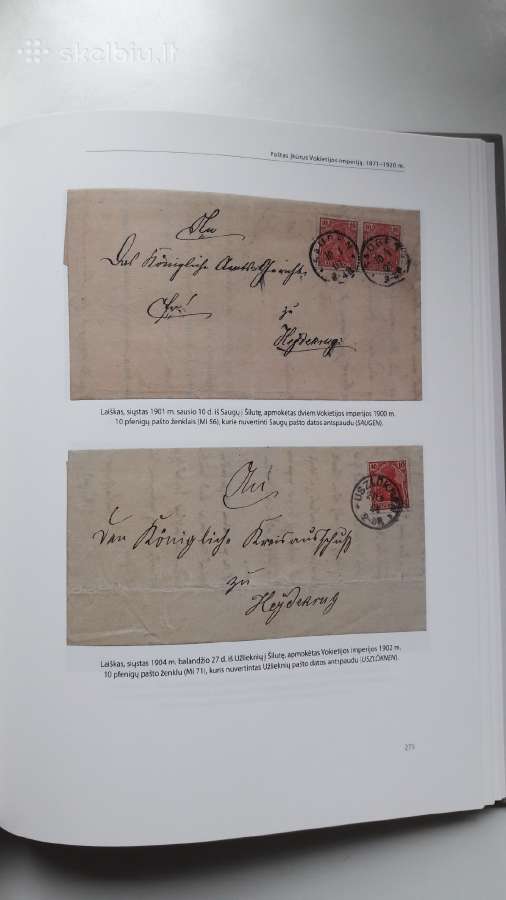 skelbiu.lt
Paštas įkūrus Vokietijos imperiją: 1871–1920 m.
An
Das Königliche Amtsgericht
zu
Heydekrug
SAUGEN
SAUGEN
Laiškas, siųstas 1901 m. sausio 10 d. iš Saugų į Šilutę, apmokėtas dviem Vokietijos imperijos 1900 m.
10 pfenigų pašto ženklais (Mi 56), kurie nuvertinti Saugų pašto datos antspaudu (SAUGEN).
An
den Königliche Kreisausschuß
zu
Heydekrug
USZLÖKNEN
Laiškas, siųstas 1904 m. balandžio 27 d. iš Užlieknių į Šilutę, apmokėtas Vokietijos imperijos 1902 m.
10 pfenigų pašto ženklu (Mi 71), kuris nuvertintas Užlieknių pašto datos antspaudu (USZLÖKNEN).